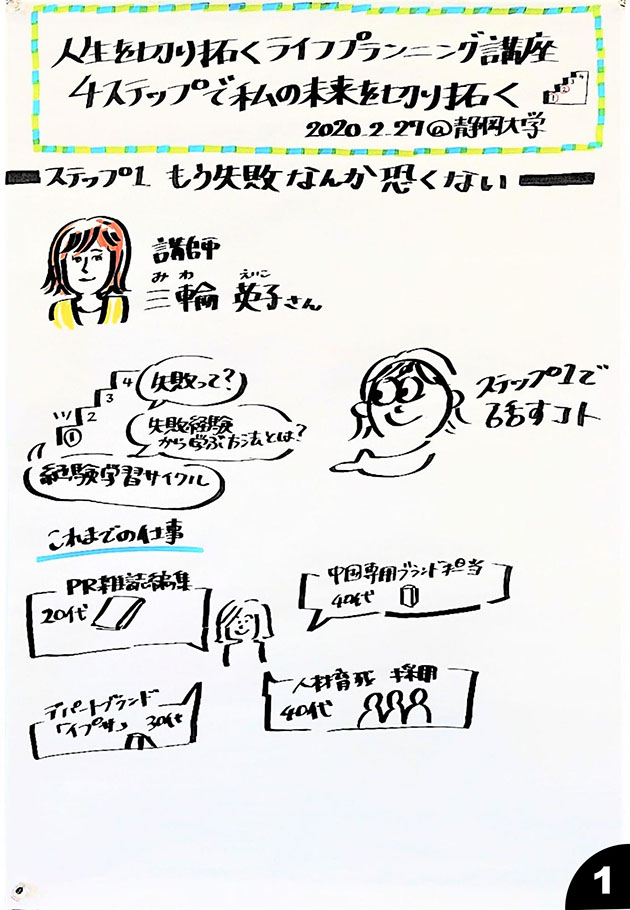 人生を切り拓くライフプランニング講座
4ステップで私の未来を切り拓く
2020.2.27@静岡大学
ステップ1 もう失敗なんか恐くない
講師
みわ えいこ
三輪 英子さん
4 失敗って?
3
2 失敗経験
から学ぶ方法とは?
①
経験学習サイクル
ステップ1で
話すコト
これまでの仕事
PR雑誌編集
20代
中国専用ブランド担当
40代
デパートブランド
「イプサ」 30代
人材育成 採用
40代
1